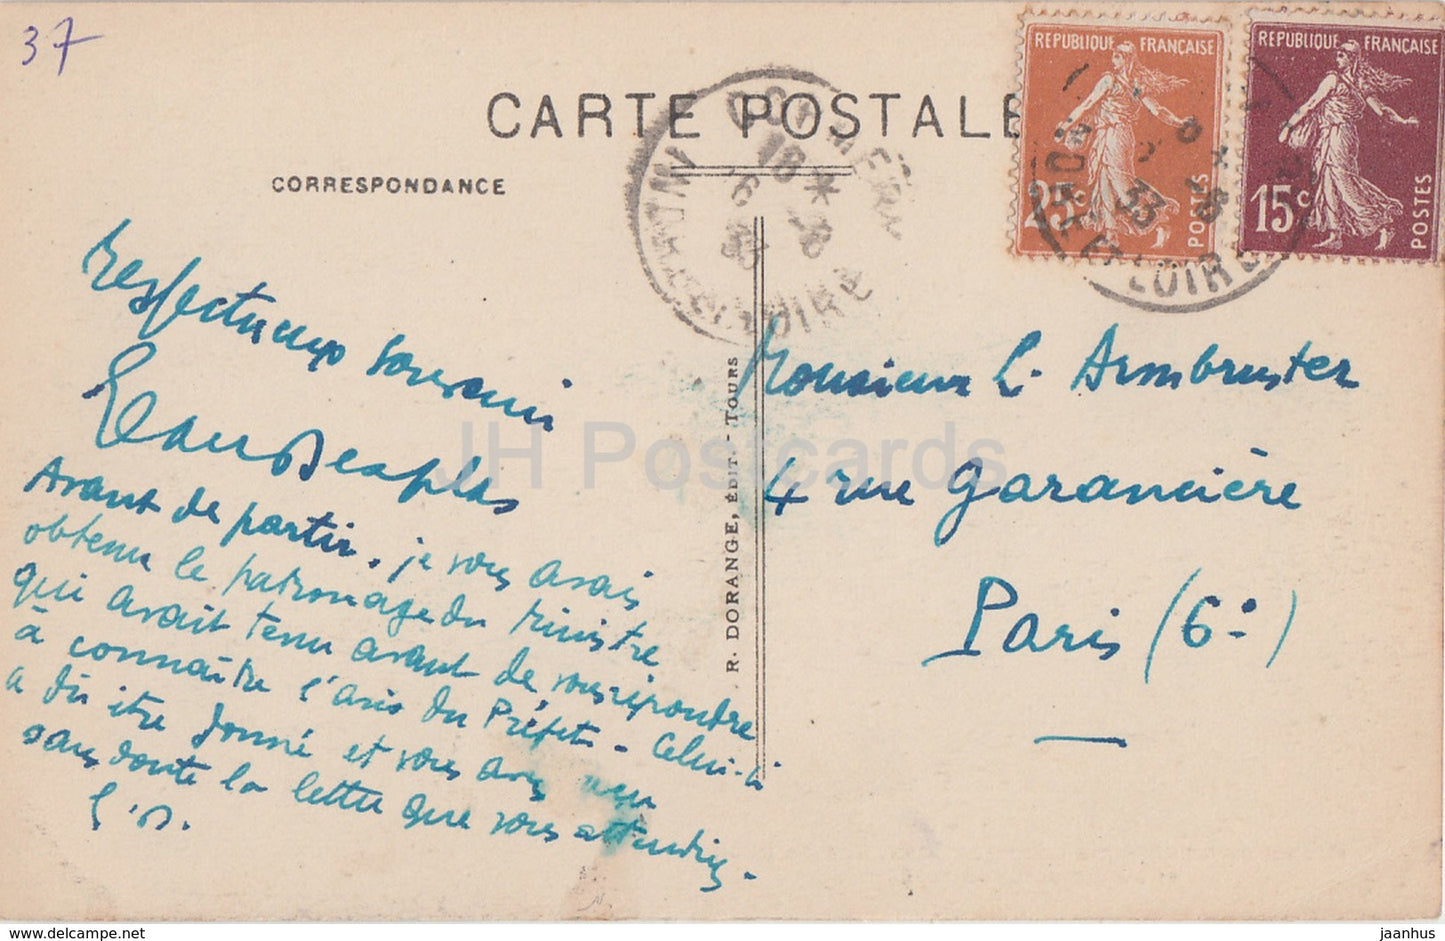 37
CARTE POSTALE
CORRESPONDANCE
REPUBLIQUE FRANÇAISE
25c
POSTES
REPUBLIQUE FRANÇAISE
15c
POSTES
18 *
6 - 8
33
INDRE ET LOIRE
Respectueux souvenir
Avant de partir, je vous avais
obtenu le patronage du Ministre
qui avait tenu avant de vous répondre
à connaître l'avis du Préfet - Celui-ci
a dû être donné et vous avez reçu
sans doute la lettre que vous attendiez -
Monsieur L. Armbruster
4 rue Garancière
Paris (6e)
R. DORANGE, ÉDIT. - TOURS
JH Postcards
www.delcampe.net
jaanhus